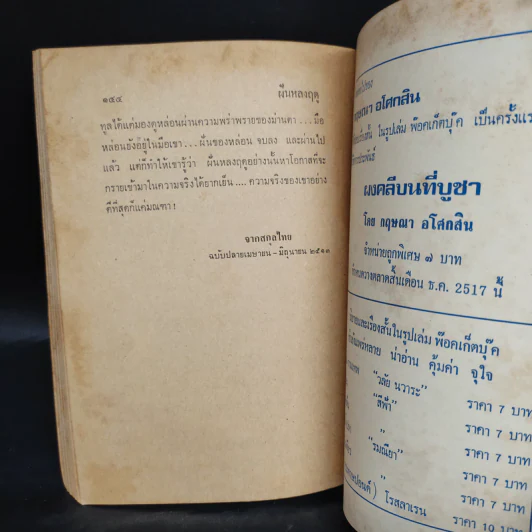 ๑๔๔ ฝันหลงฤดู
ทูลได้แต่มองดูหล่อนผ่านความพร่าพรายของม่านตา . . . มือ
หล่อนยังอยู่ในมือเขา . . . ฝันของหล่อน จบลง และผ่านไป
แล้ว แต่ก็ทำให้เขารู้ว่า ฝันหลงฤดูอย่างนั้นหาโอกาสที่จะ
กรายเข้ามาในความจริงได้ยากเย็น . . . . ความจริงของเขาอย่าง
ดีที่สุดก็แค่มณฑา !
จากสกุลไทย
ฉบับปลายเมษายน – มิถุนายน ๒๕๑๓
กฤษณา อโศกสิน
ในรูปเล่ม พ๊อคเก็ตบุ๊ค เป็นครั้งแร
ผงคลีบนที่บูชา
โดย กฤษณา อโศกสิน
จำหน่ายถูกพิเศษ ๗ บาท
วางตลาดสิ้นเดือน ธ.ค. 2517 นี้
และเรื่องสั้นในรูปเล่ม พ๊อคเก็ตบุ๊ค
น่าอ่าน คุ้มค่า จุใจ
"วลัย นวาระ" ราคา 7 บาท
"สีฟ้า" ราคา 7 บาท
" ราคา 7 บาท
"รมณียา" ราคา 7 บาท
" ราคา 7 บาท
) โรสลาเรน ราคา 10 บาท